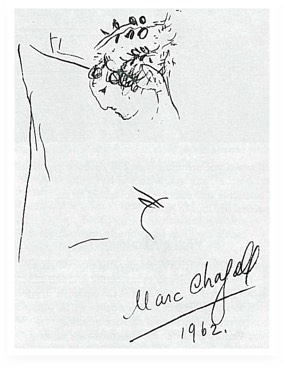 Marc Chagall
1962.